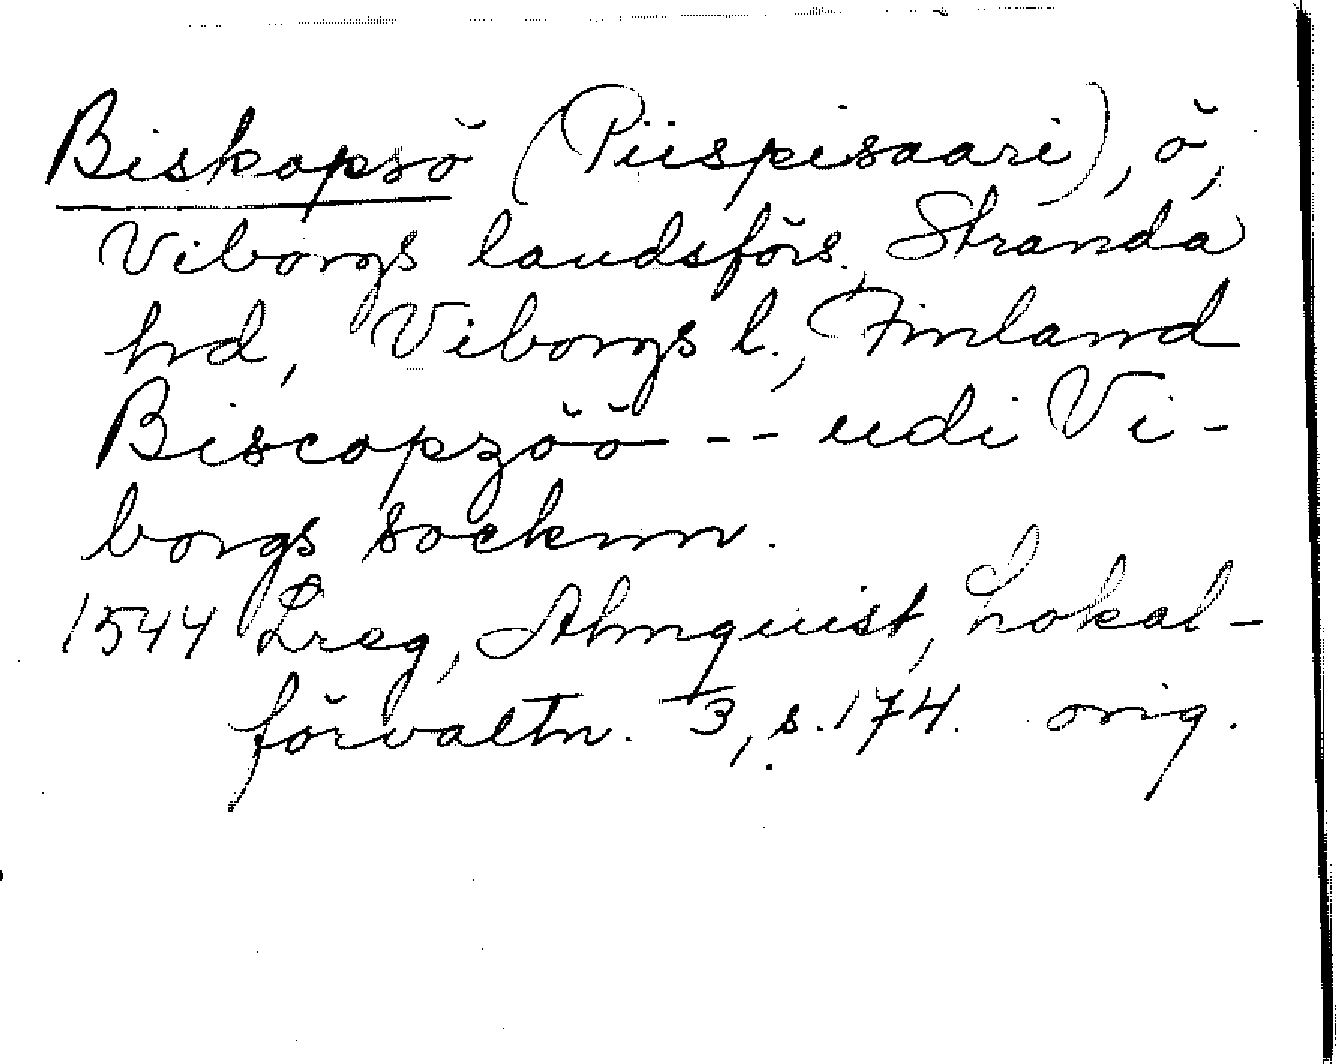 Biskopsö (Piispisaari), ö,
Viborgs landsförs., Stranda
hd, Viborgs l., Finland
Biscopzöö -- udi Vi-
borgs socknn.
1544 Lreg, Almquist, Lokal-
förvaltn. 3, s. 174. orig.